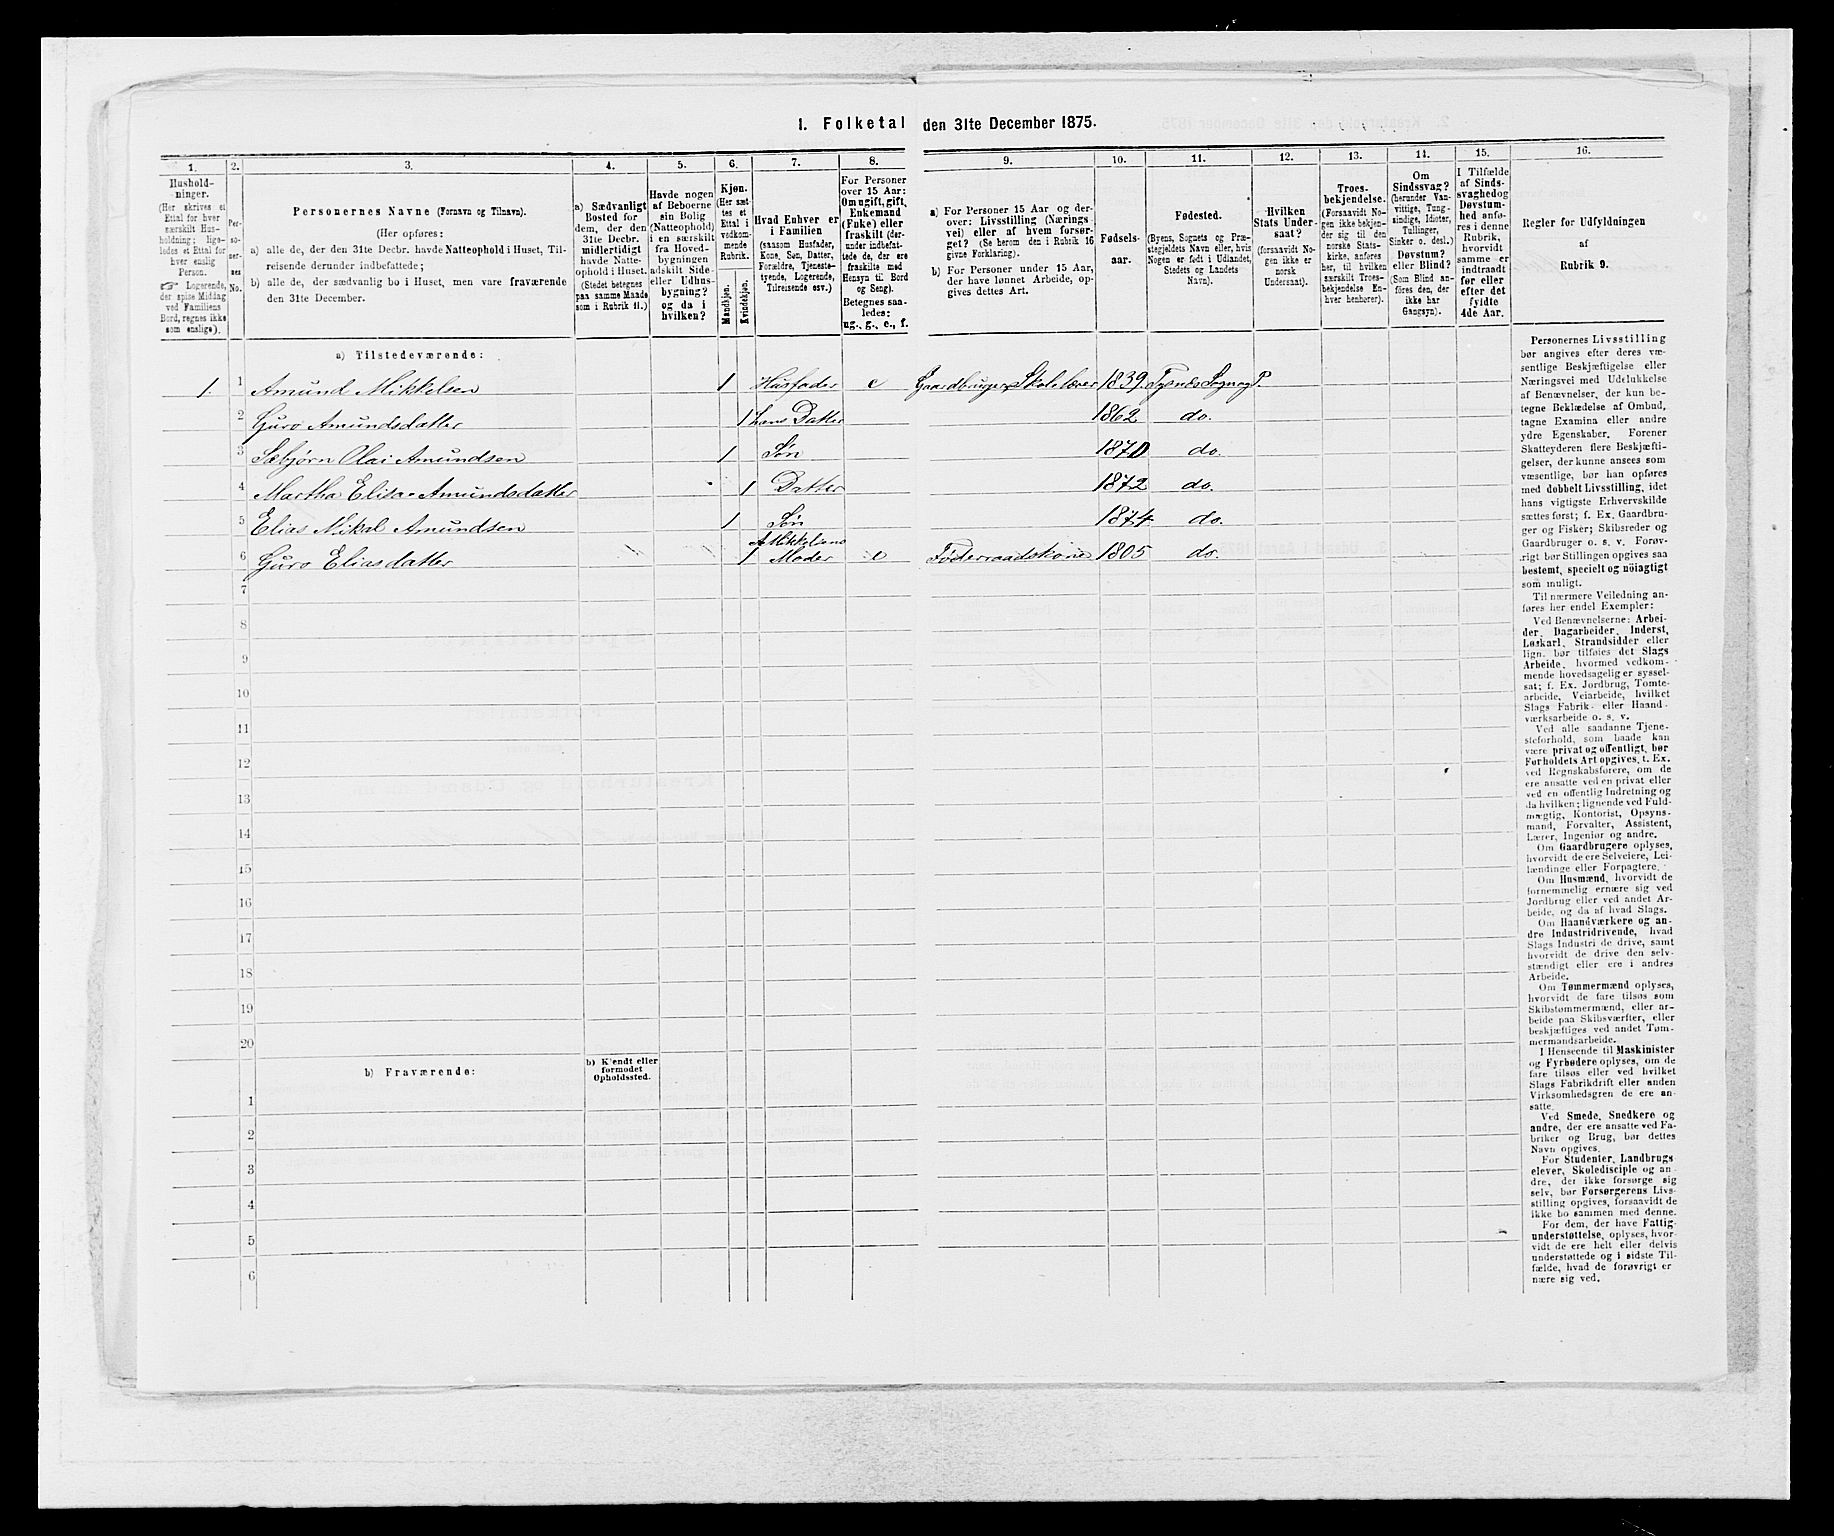 1. Folketal den 31te December 1875.
1.
2.
3.
4.
5.
6.
7.
8.
9.
10.
11.
12.
13.
14.
15.
16.
Hushold-
ninger.
(Her skrives et
Ettal for hver
særskilt Hus-
holdning; lige-
ledes et Ettal for
hver enslig
Person.
☞ Logerende,
der spise Middag
ved Familiens
Bord, regnes ikke
som enslige).
Per-
so-
ner-
nes
No.
Personernes Navne (Fornavn og Tilnavn).
(Her opføres:
a) alle de, der den 31te Decbr. havde Natteophold i Huset, Til-
reisende derunder indbefattede;
b) alle de, der sædvanlig bo i Huset, men vare fraværende
den 31te December.
a) Sædvanligt
Bosted for
dem, der den
31te Decbr.
midlertidigt
havde Natte-
ophold i Huset.
(Stedet betegnes
paa samme Maade
som i Rubrik 11.)
Havde nogen
af Beboerne
sin Bolig
(Natteophold)
i en særskilt
fra Hoved-
bygningen
adskilt Side-
eller Udhus-
bygning?
og da i
hvilken?
Kjøn.
(Her sæt-
tes et
Ettal i
vedkom-
mende
Rubrik.
Mandkjøn.
Kvindekjøn.
Hvad Enhver er
i Familien
(saasom Husfader,
Kone, Søn, Datter,
Forældre, Tjeneste-
tyende, Logerende,
Tilreisende osv.)
For Personer
over 15 Aar:
Om ugift, gift,
Enkemand
(Enke) eller
fraskilt (der-
under indbefat-
tede de, der ere
fraskilte med
Hensyn til Bord
og Seng).
Betegnes saa-
ledes:
ug., g., e., f.
a) For Personer 15 Aar og der-
over: Livsstilling (Nærings-
vei) eller af hvem forsør-
get? (Se herom den i Rubrik 16
givne Forklaring).
b) For Personer under 15 Aar,
der have lønnet Arbeide, op-
gives dettes Art.
Fødsels-
aar.
Fødested.
(Byens, Sognets og Præ-
stegjeldets Navn eller, hvis
Nogen er født i Udlandet,
Stedets og Landets
Navn).
Hvilken
Stats Under-
saat?
(forsaavidt No-
gen ikke er
norsk
Undersaat).
Troes-
bekjendelse.
(Forsaavidt No-
gen ikke bekjen-
der sig til den
norske Stats-
kirke, anføres
her, til hvilken
særskilt Troes-
bekjendelse En-
hver henhører).
Om
Sindssvag?
(herunder Van-
vittige, Tung-
sindige, Idioter,
Tullinger,
Sinker o. desl.)
Døvstum?
eller Blind?
(Som Blind an-
føres den, der
ikke har
Gangsyn).
I Tilfælde
af Sinds-
svaghed og
Døvstum-
hed anfø-
res i denne
Rubrik,
hvorvidt
samme er
indtraadt
før eller
efter det
fyldte
4de Aar.
Regler for Udfyldningen
af
Rubrik 9.
a) Tilstedeværende:
1. 1 Amund Mikkelsen 1 Husfader e Gaardbruger, Skolelærer 1839 Tysnæs Sogn og P.
2 Guro Amundsdatter 1 hans Datter 1862 do.
3 Sæbjørn Olai Amundsen 1 Søn 1870 do.
4 Martha Elisa Amundsdatter 1 Datter 1872 do.
5 Elias Mikal Amundsen 1 Søn 1874 do.
6 Guro Eliasdatter 1 A Mikkelsens Moder e Føderaadskone 1805 do.
7
8
9
10
11
12
13
14
15
16
17
18
19
20
b) Fraværende:
b) Kjendt eller
formodet
Opholdssted.
1
2
3
4
5
6
Personernes Livsstilling
bør angives efter deres væ-
sentlige Beskjæftigelse eller
Næringsvei med Udelukkelse
af Benævnelser, der kun be-
tegne Beklædelse af Ombud,
tagne Examina eller andre
ydre Egenskaber. Forener
Skatteyderen flere Beskjæfti-
gelser, der kunne ansees som
væsentlige, bør han opføres
med dobbelt Livsstilling, idet
hans vigtigste Erhvervskilde
sættes først; f. Ex. Gaardbru-
ger og Fisker; Skibsreder og
Gaardbruger o. s. v. Forøv-
rigt bør Stillingen opgives saa
bestemt, specielt og nöiagtigt
som muligt.
Til nærmere Veiledning an-
føres her endel Exempler:
Ved Benævnelserne: Arbei-
der, Dagarbeider, Inderst,
Løskarl, Strandsidder eller
lign. bør tilføies det Slags
Arbeide, hvormed vedkom-
mende hovedsagelig er syssel-
sat; f. Ex. Jordbrug, Tomte-
arbeide, Veiarbeide, hvilket
Slags Fabrik- eller Haand-
værksarbeide o. s. v.
Ved alle saadanne Tjene-
steforhold, som baade kan
være privat og offentligt, bør
Forholdets Art opgives, t. Ex.
ved Regnskabsførere, om de
ere ansatte ved en privat eller
ved en offentlig Indretning og
da hvilken; lignende ved Fuld-
mægtig, Kontorist, Opsyns-
mand, Forvalter, Assistent,
Lærer, Ingeniør og andre.
Om Gaardbrugere oplyses,
hvorvidt de ere Selveiere, Lei-
lændinge eller Forpagtere.
Om Husmænd, hvorvidt de
fornemmelig ernære sig ved
Jordbrug eller ved andet Ar-
beide, og da af hvad Slags.
Om Haandværkere og an-
dre Industridrivende, hvad
Slags Industri de drive, samt
hvorvidt de drive den selv-
stændigt eller ere i andres
Arbeide.
Om Tømmermænd oplyses,
hvorvidt de fare tilsøs som
Skibstømmermænd, eller ar-
beide paa Skibsværfter, eller
beskjæftiges ved andet Tøm-
mermandsarbeide.
I Henseende til Maskinister
og Fyrbødere oplyses, om de
fare tilsøs eller ved hvilket
Slags Fabrikdrift eller anden
Virksomhedsgren de ere an-
satte.
Ved Smede, Snedkere og
andre, der ere ansatte ved Fa-
briker og Brug, bør dettes
Navn opgives.
For Studenter, Landbrugs-
elever, Skoledisciple og an-
dre, der ikke forsørge sig
selv, bør Forsørgerens Livs-
stilling opgives, forsaavidt de
ikke bo sammen med denne.
For dem, der have Fattig-
understøttelse, oplyses, hvor-
vidt de ere helt eller delvis
understøttede og i sidste Til-
fælde, hvad de forøvrigt er
nære sig ved.